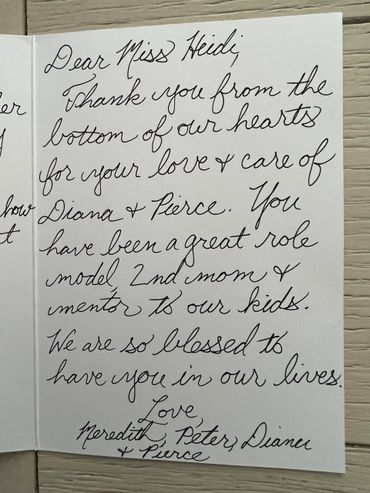 Dear Miss Heidi,
Thank you from the
bottom of our hearts
for your love & care of
Diana & Pierce. You
have been a great role
model, 2nd mom &
mentor to our kids.
We are so blessed to
have you in our lives.
Love,
Meredith, Peter, Diana
& Pierce
how